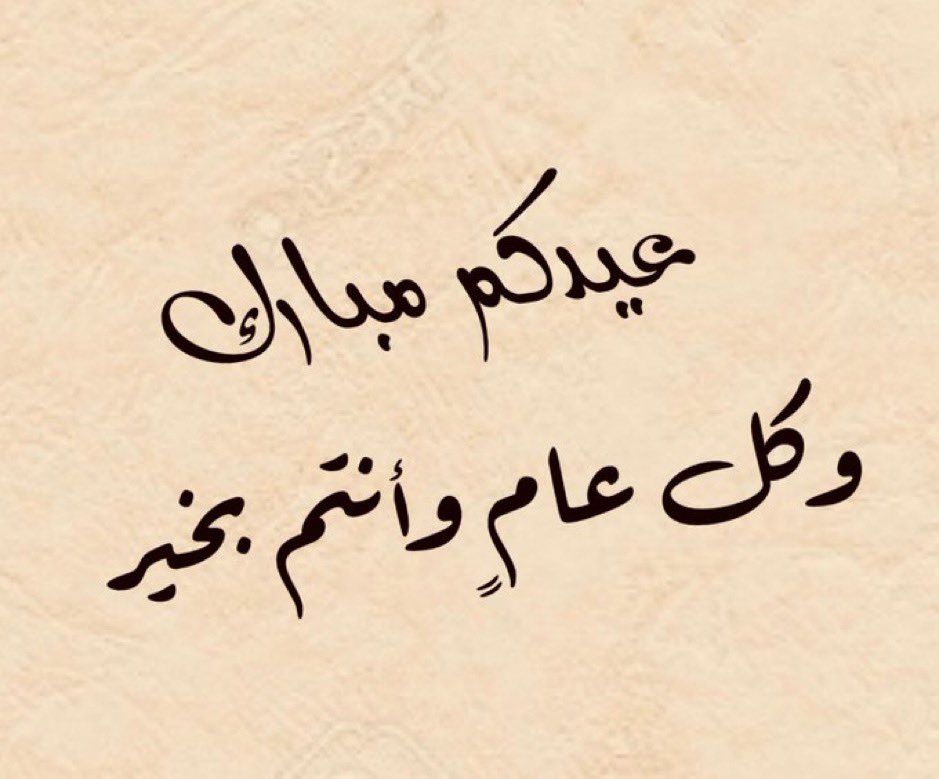 عيدكم مبارك
وكل عامٍ وأنتم بخير